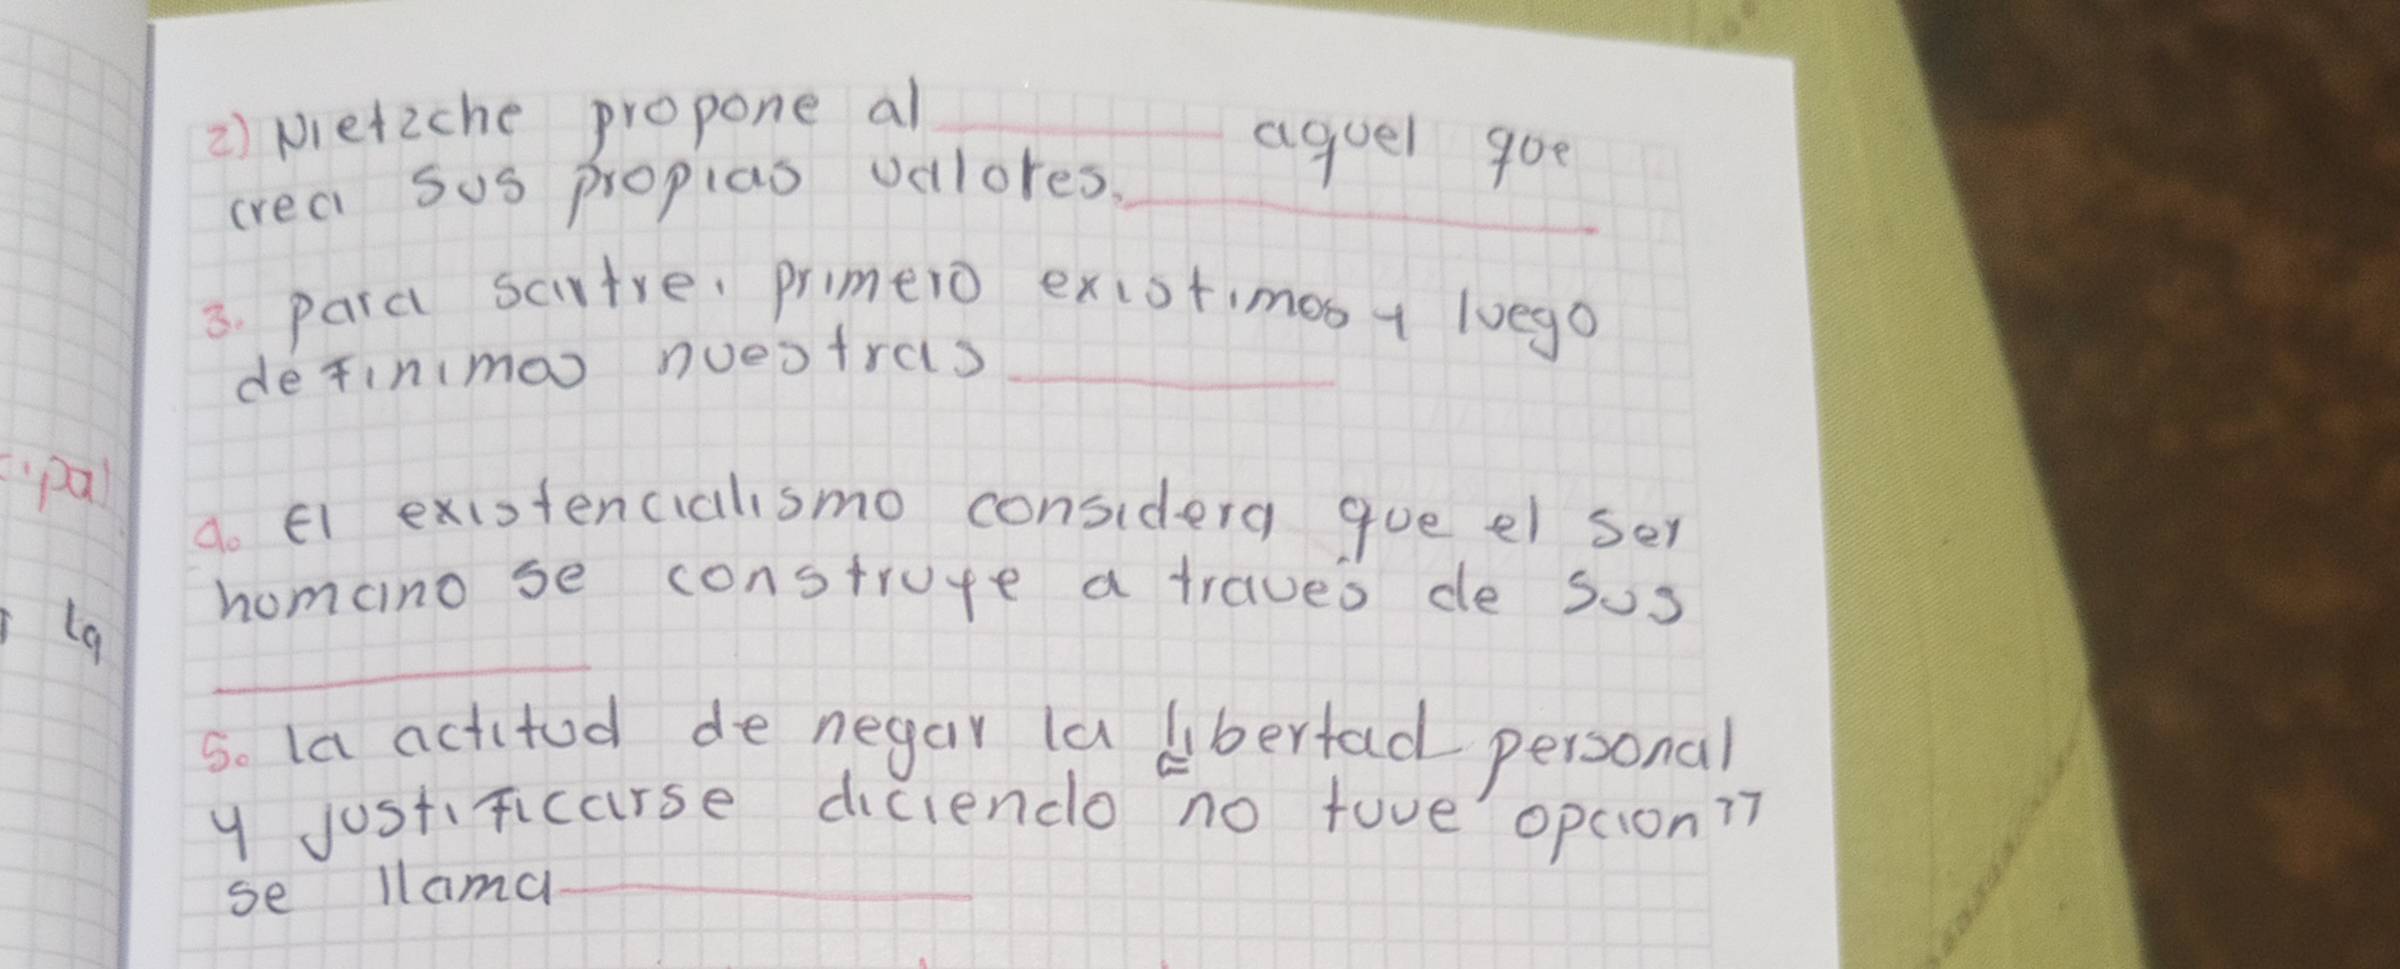 2) Nietzche propone al ________ aquel que
crea sus propias valores. ________
3. para sartre, primero existimos y luego
definimos nuestras ________
cipal
4. El existencialismo considera que el ser
homano se construye a través de sus
la
________
5. la actitud de negar la libertad personal
y justificarse diciendo no tuve opcion"
se llama ________